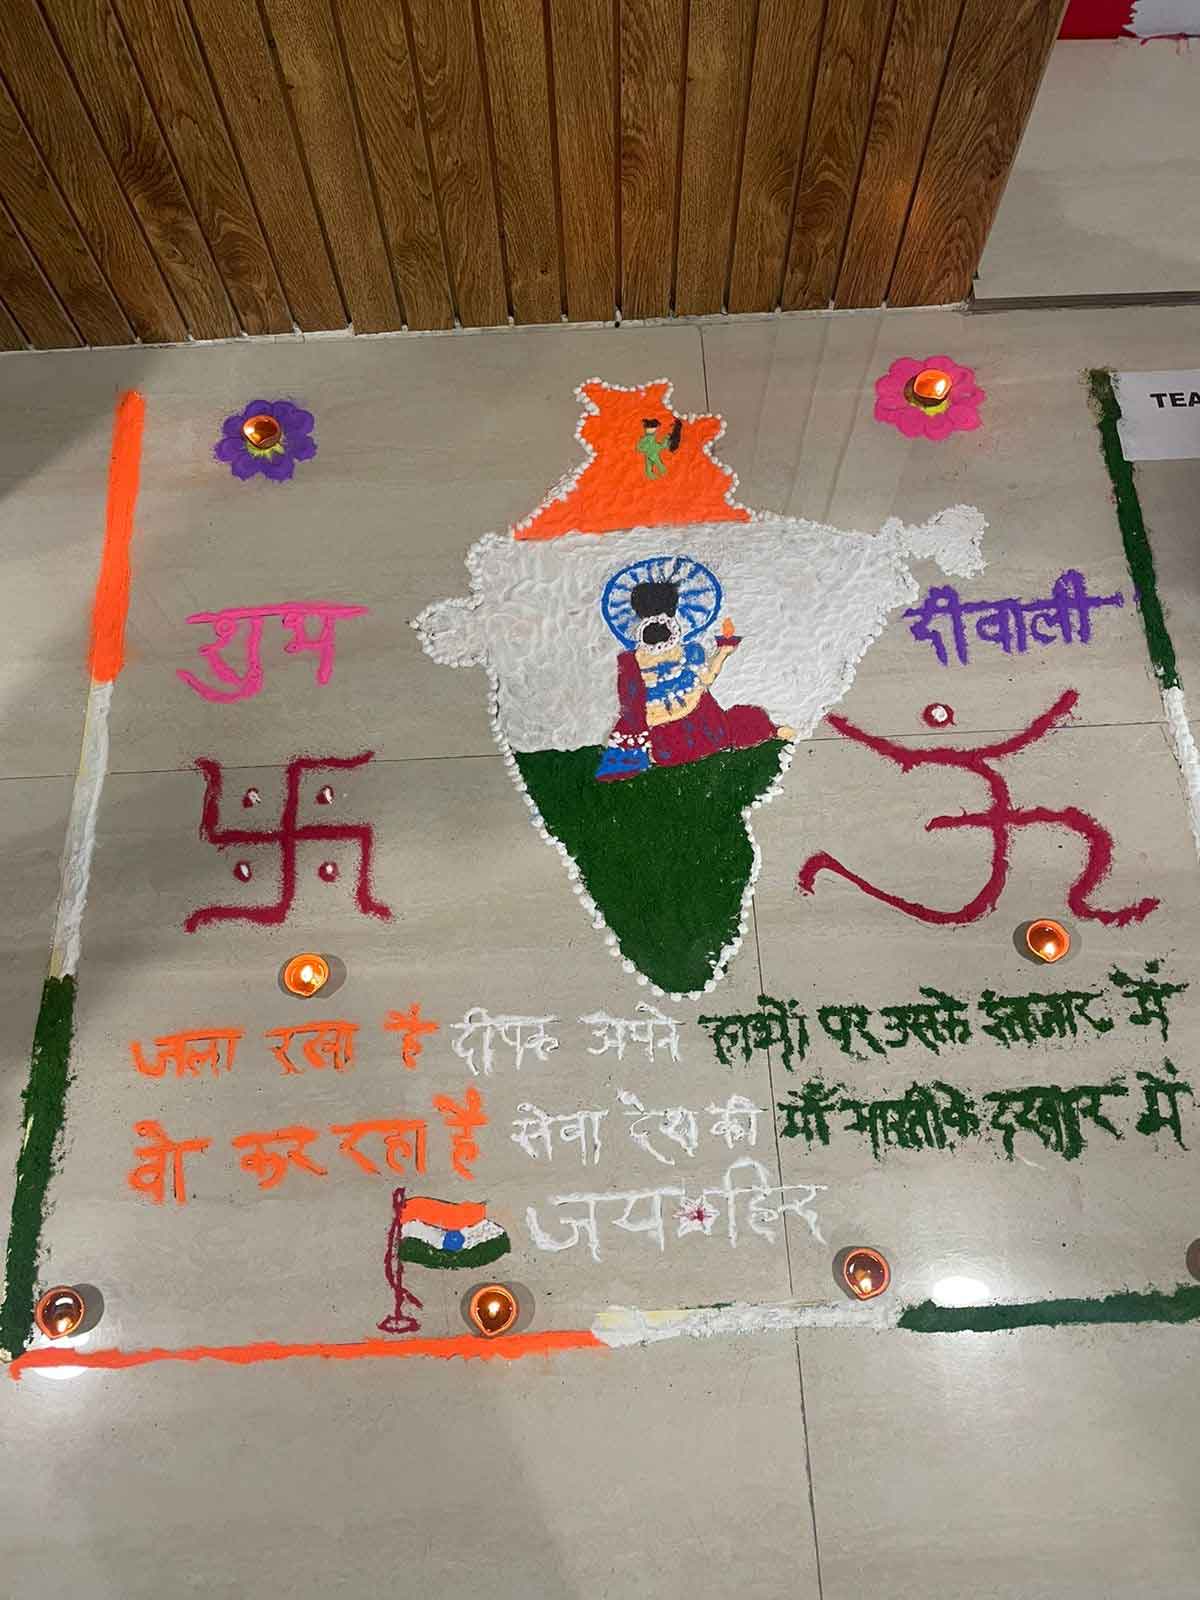 TEA
शुभ
दीवाली
ॐ
जला रखा है दीपक अपने हाथों पर उसके इंतजार में
वो कर रहा है सेवा देश की माँ भारती के दरबार में
जय हिंद